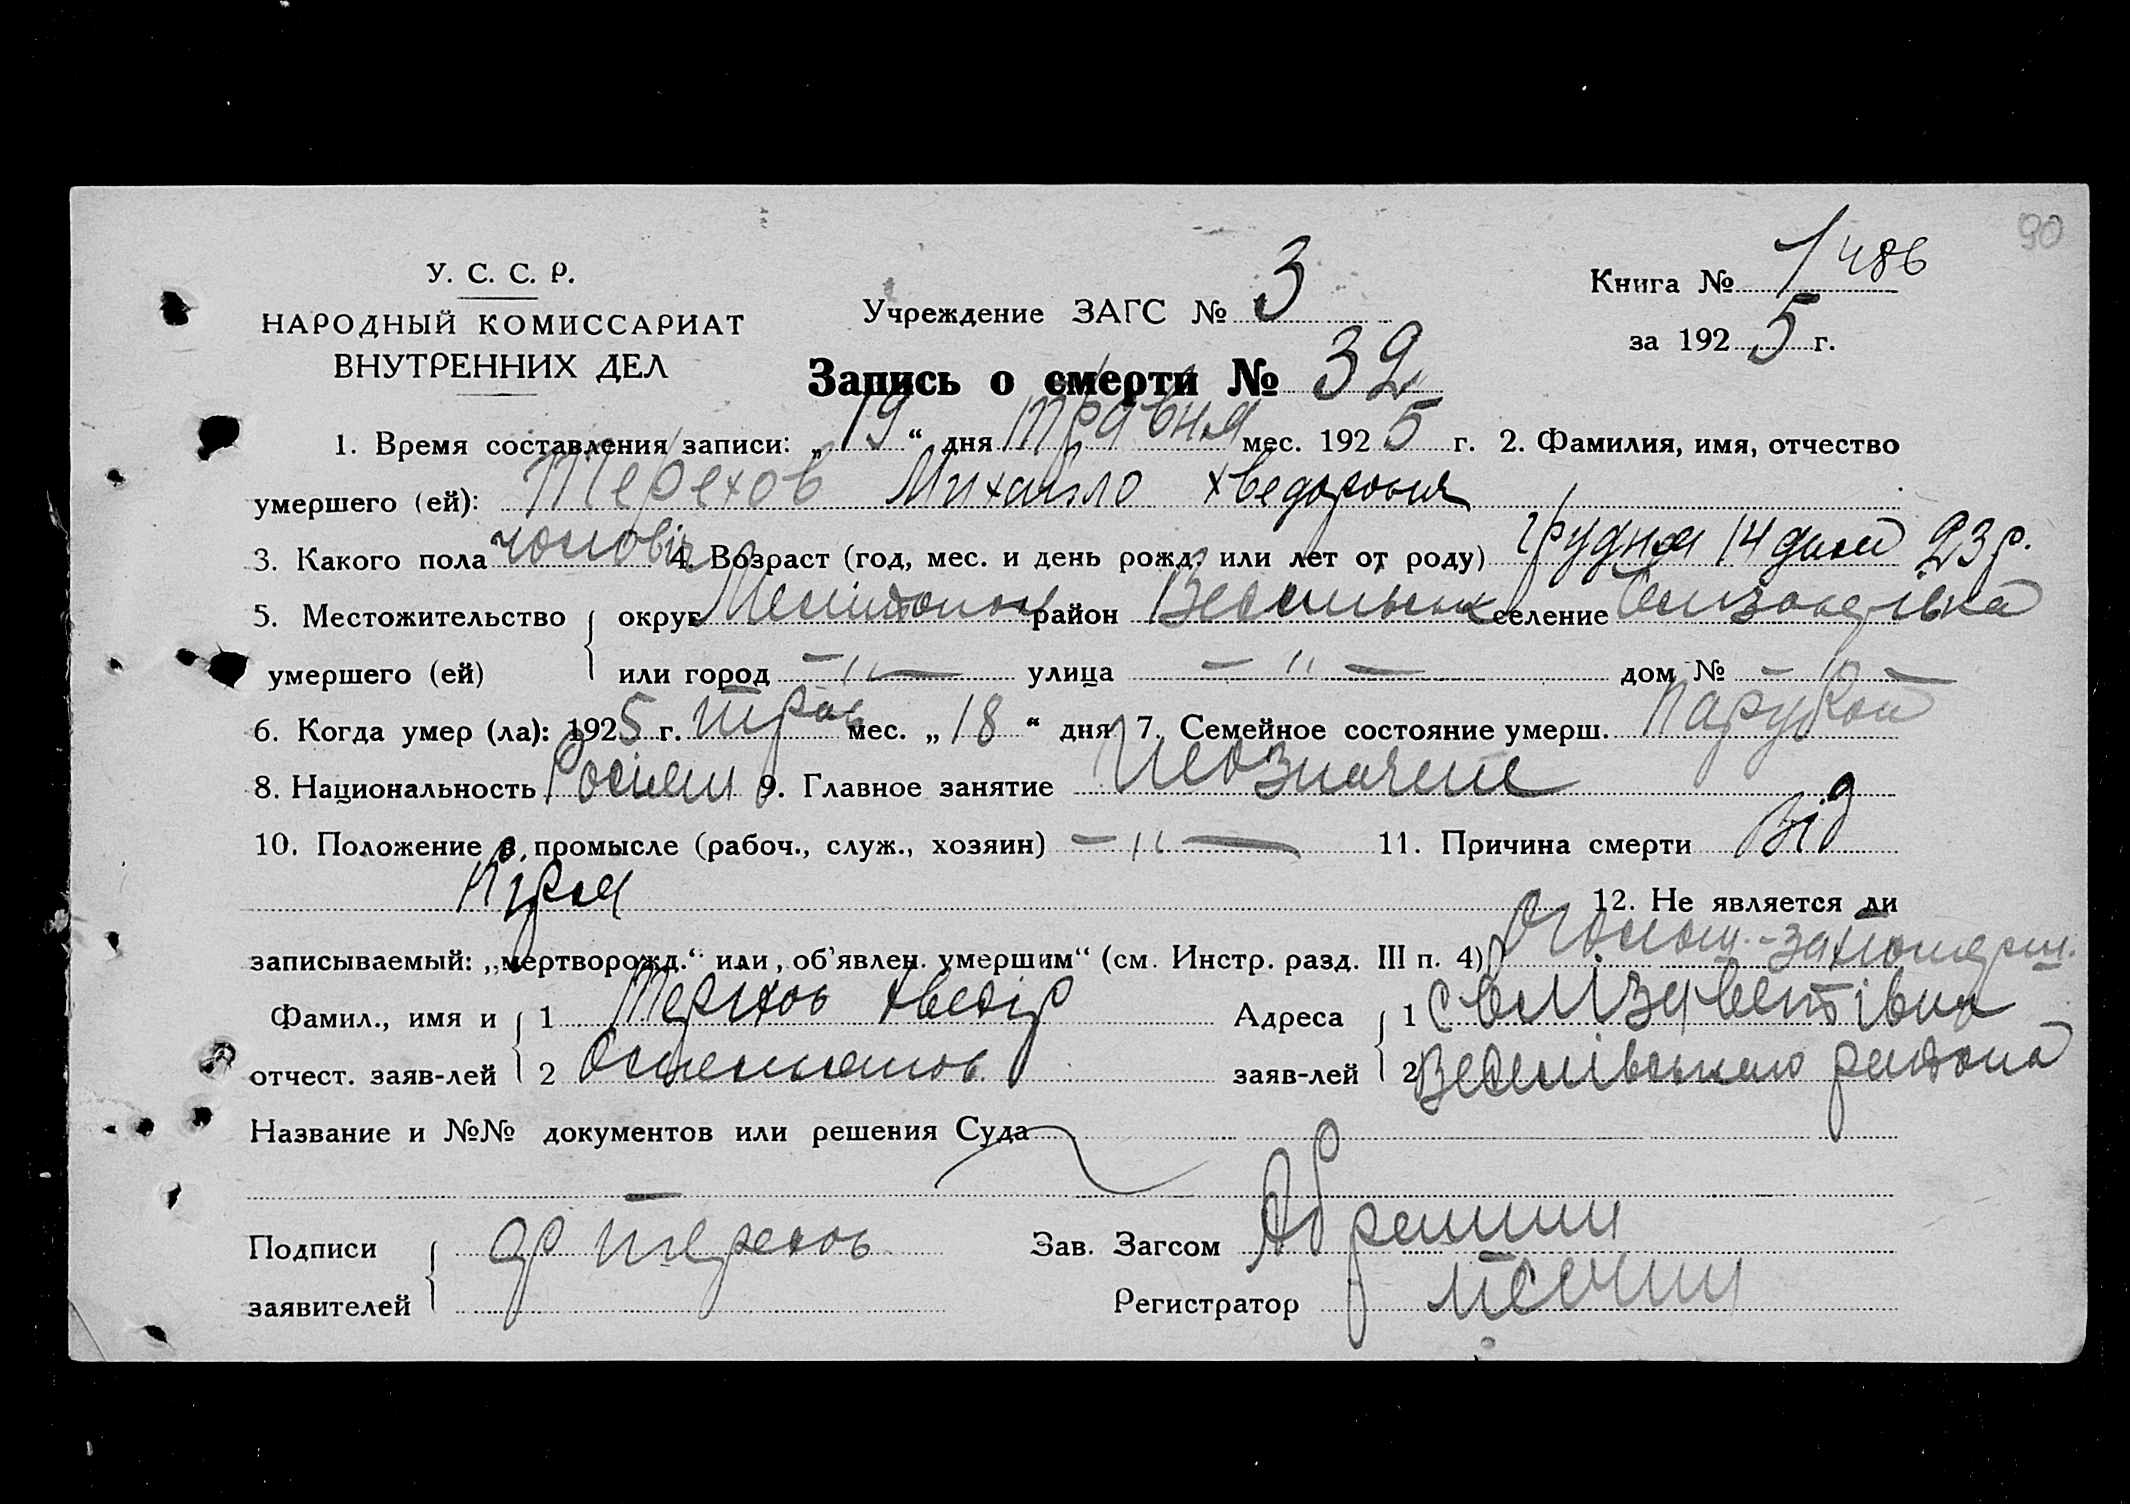 90
У. С. С. Р.
НАРОДНЫЙ КОМИССАРИАТ
ВНУТРЕННИХ ДЕЛ
Учреждение ЗАГС № 3
Книга № 1 486
за 1925 г.
Запись о смерти № 32
1. Время составления записи: „19“ дня травня мес. 1925 г. 2. Фамилия, имя, отчество
умершего (ей): Терехов Михайло Хведорович
3. Какого пола чоловіч 4. Возраст (год, мес. и день рожд. или лет от роду) грудня 14 дня 23 р.
5. Местожительство округ район селение
умершего (ей) или город —"— улица —"— дом № —"—
6. Когда умер (ла): 1925 г. трав мес. „18“ дня 7. Семейное состояние умерш.
8. Национальность 9. Главное занятие
10. Положение в промысле (рабоч., служ., хозяин) —"— 11. Причина смерти Від
12. Не является ли
записываемый: „мертворожд.“ или „об'явлен. умершим“ (см. Инстр. разд. III п. 4)
Фамил., имя и 1 Терехов Хведір Адреса 1 с Єлізаветівка
отчест. заяв-лей 2 заяв-лей 2 Веселівського района
Название и №№ документов или решения Суда
Подписи Терехов Зав. Загсом
заявителей Регистратор